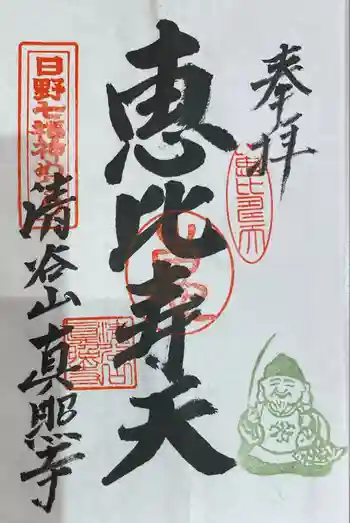 奉拝
恵比寿天
日野七福神
清谷山真照寺